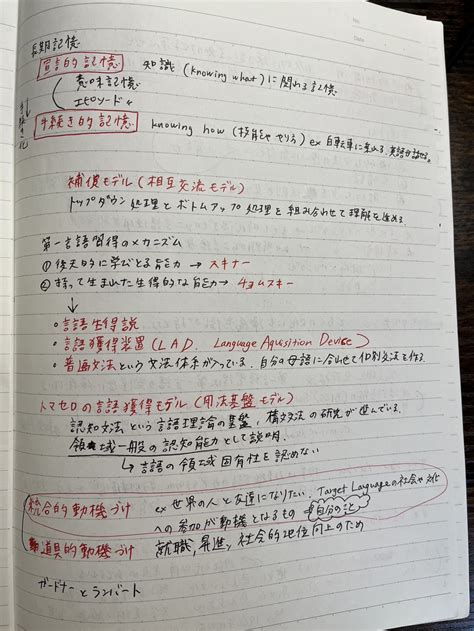 No.
Date
長期記憶
宣言的記憶 知識 (knowing what) に関わる記憶
意味記憶
エピソード〃
手続き化
手続き的記憶 knowing how (技能ややり方) ex 自転車に乗れる、英語が話せる。
補償モデル (相互交流モデル)
トップダウン処理とボトムアップ処理を組み合わせて理解を進める
第一言語習得のメカニズム
① 後天的に学びとる能力 → スキナー
② 持って生まれた生得的な能力 → チョムスキー
↓
○ 言語生得説
○ 言語獲得装置 (LAD. Language Aquisition Device)
・普遍文法という文法体系が入っている。自分の母語に合わせて個別文法を作る
トマセロの言語獲得モデル (用法基盤モデル)
認知文法という言語理論の基盤，構文文法の研究が進んでいる。
領域一般の認知能力として説明．
↳ 言語の領域固有性を認めない
統合的動機づけ ex 世界の人と友達になりたい、Target Languageの社会や文化
への参加が動機となるもの 自分のこと
道具的動機づけ 就職，昇進，社会的地位向上のため
ガードナーとランバート